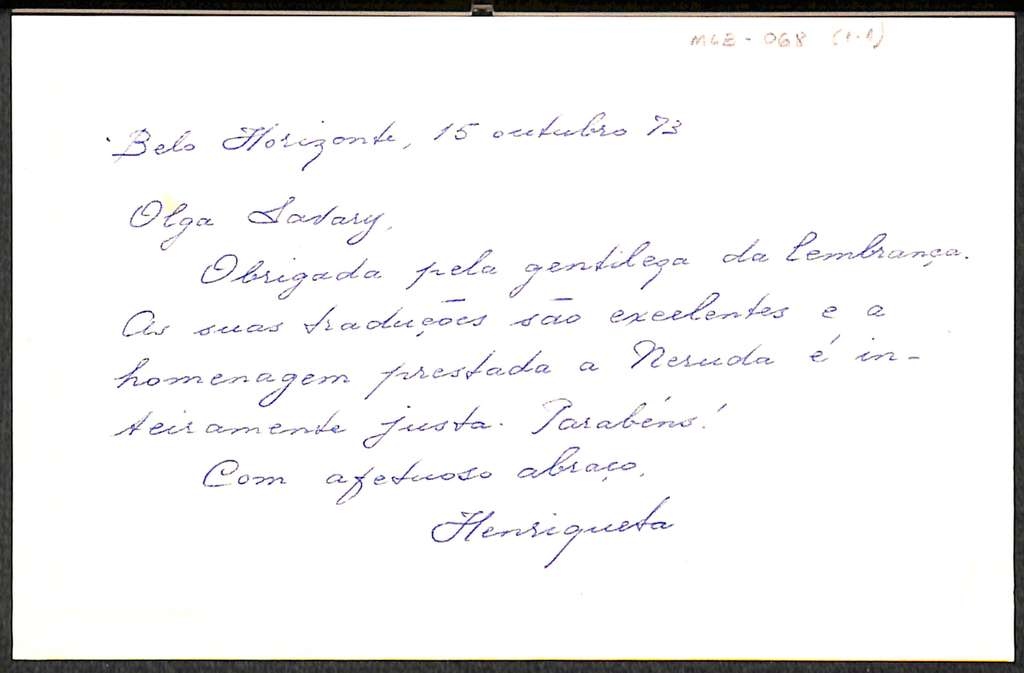 MLE - 068 (1-1)
Belo Horizonte, 15 outubro 73
Olga Savary,
Obrigada pela gentileza da lembrança.
As suas traduções são excelentes e a
homenagem prestada a Neruda é in-
teiramente justa. Parabéns!
Com afetuoso abraço,
Henriqueta